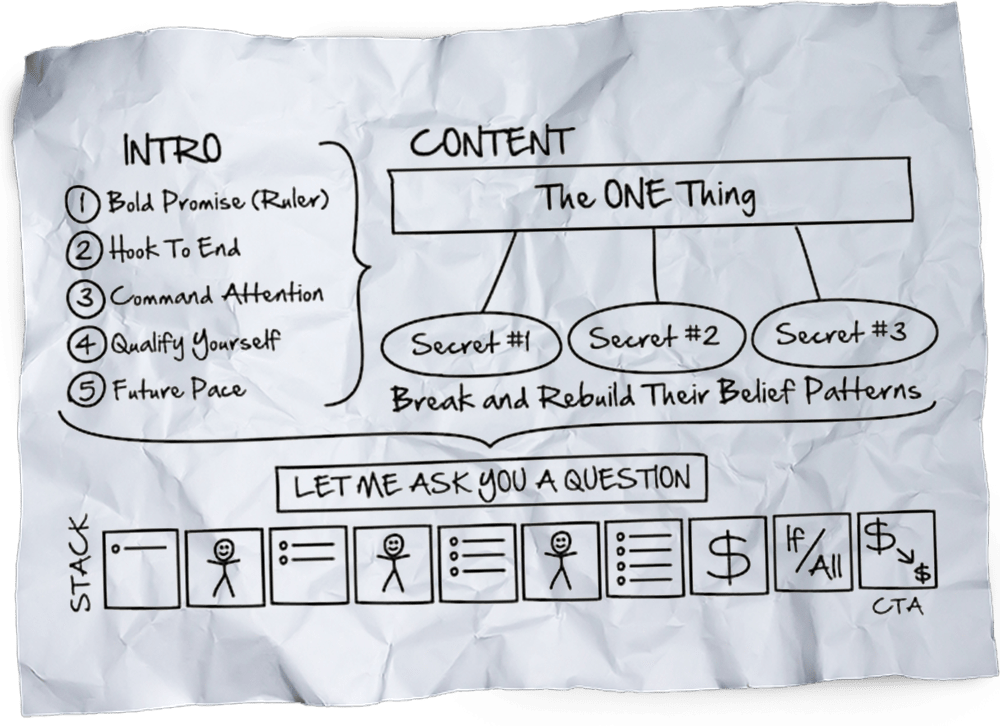 INTRO
1 Bold Promise (Ruler)
2 Hook To End
3 Command Attention
4 Qualify Yourself
5 Future Pace
CONTENT
The ONE Thing
Secret #1
Secret #2
Secret #3
Break and Rebuild Their Belief Patterns
LET ME ASK YOU A QUESTION
STACK
$
If/All
$ $
CTA